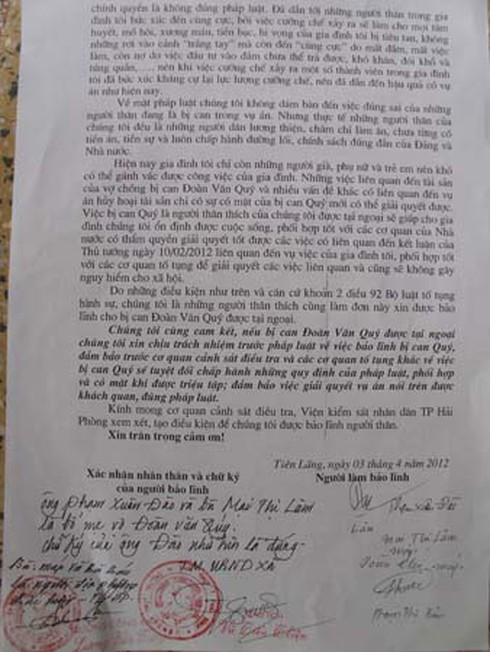 chính quyền là không đúng pháp luật. Đã dẫn tới những người thân trong gia
đình tôi bức xúc đến cùng cực, bởi việc cưỡng chế xảy ra sẽ làm cho mọi tâm
huyết, mồ hôi, xương máu, tiền bục, hi vọng của gia đình tôi bị tiêu tan, không
những rơi vào cảnh "trắng tay" mà còn đến "cùng cực" do mất đầm, mất việc
làm, còn nợ do việc đầu tư vào đầm chưa thể trả được, khó khăn, đói khổ và
túng quẫn, ..... nên khi việc cưỡng chế xảy ra một số thành viên trong gia đình
tôi đã bức xúc kháng cự lại lực lượng cưỡng chế, nên đã dẫn đến hậu quả có vụ
án như hiện nay.
Về mặt pháp luật chúng tôi không dám bàn đến việc đúng sai của những
người thân đang là bị can trong vụ án. Nhưng thực tế những người thân của
chúng tôi đều là những người dân lương thiện, chăm chỉ làm ăn, chưa từng có
tiền án, tiền sự và luôn chấp hành đường lối, chính sách đúng đắn của Đảng và
Nhà nước.
Hiện nay gia đình tôi chỉ còn những người già, phụ nữ và trẻ em nên khó
có thể gánh vác được công việc của gia đình. Những việc liên quan đến tài sản
của vợ chồng bị can Đoàn Văn Quý và nhiều vấn đề khác có liên quan đến vụ
án hủy hoại tài sản chỉ có sự có mặt của bị can Quý mới có thể giải quyết được.
Việc bị can Quý là người thân thích của chúng tôi được tại ngoại sẽ giúp cho gia
đình chúng tôi ổn định được cuộc sống, phối hợp tốt với các cơ quan của Nhà
nước có thẩm quyền giải quyết tốt được các việc có liên quan đến kết luận của
Thủ tướng ngày 10/02/2012 liên quan đến vụ việc của gia đình tôi, phối hợp tốt
với các cơ quan tố tụng để giải quyết các việc liên quan và cũng sẽ không gây
nguy hiểm cho xã hội.
Do những điều kiện như trên và căn cứ khoản 2 điều 92 Bộ luật tố tụng
hình sự, chúng tôi là những người thân thích cùng làm đơn này xin được bảo
lĩnh cho bị can Đoàn Văn Quý được tại ngoại.
Chúng tôi cùng cam kết, nếu bị can Đoàn Văn Quý được tại ngoại
chúng tôi xin chịu trách nhiệm trước pháp luật về việc bảo lĩnh bị can Quý,
đảm bảo trước cơ quan cảnh sát điều tra và các cơ quan tố tụng khác về việc
bị can Quý sẽ tuyệt đối chấp hành những quy định của pháp luật, phối hợp
và có mặt khi được triệu tập; đảm bảo việc giải quyết vụ án nói trên được
khách quan, đúng pháp luật.
Kính mong cơ quan cảnh sát điều tra, Viện kiểm sát nhân dân TP Hải
Phòng xem xét, tạo điều kiện để chúng tôi được bảo lĩnh người thân.
Xin trân trọng cảm ơn!
Tiên Lãng, ngày 03 tháng 4 năm 2012
Xác nhận nhân thân và chữ ký
của người bảo lĩnh
Người làm bảo lĩnh
ông Phạm Xuân Đào và bà Mai Thị Lầm
là bố mẹ vợ Đoàn Văn Quý.
chữ ký của ông Đào như trên là đúng.
TM. UBND XÃ
Lầm
Mai Thị Lầm